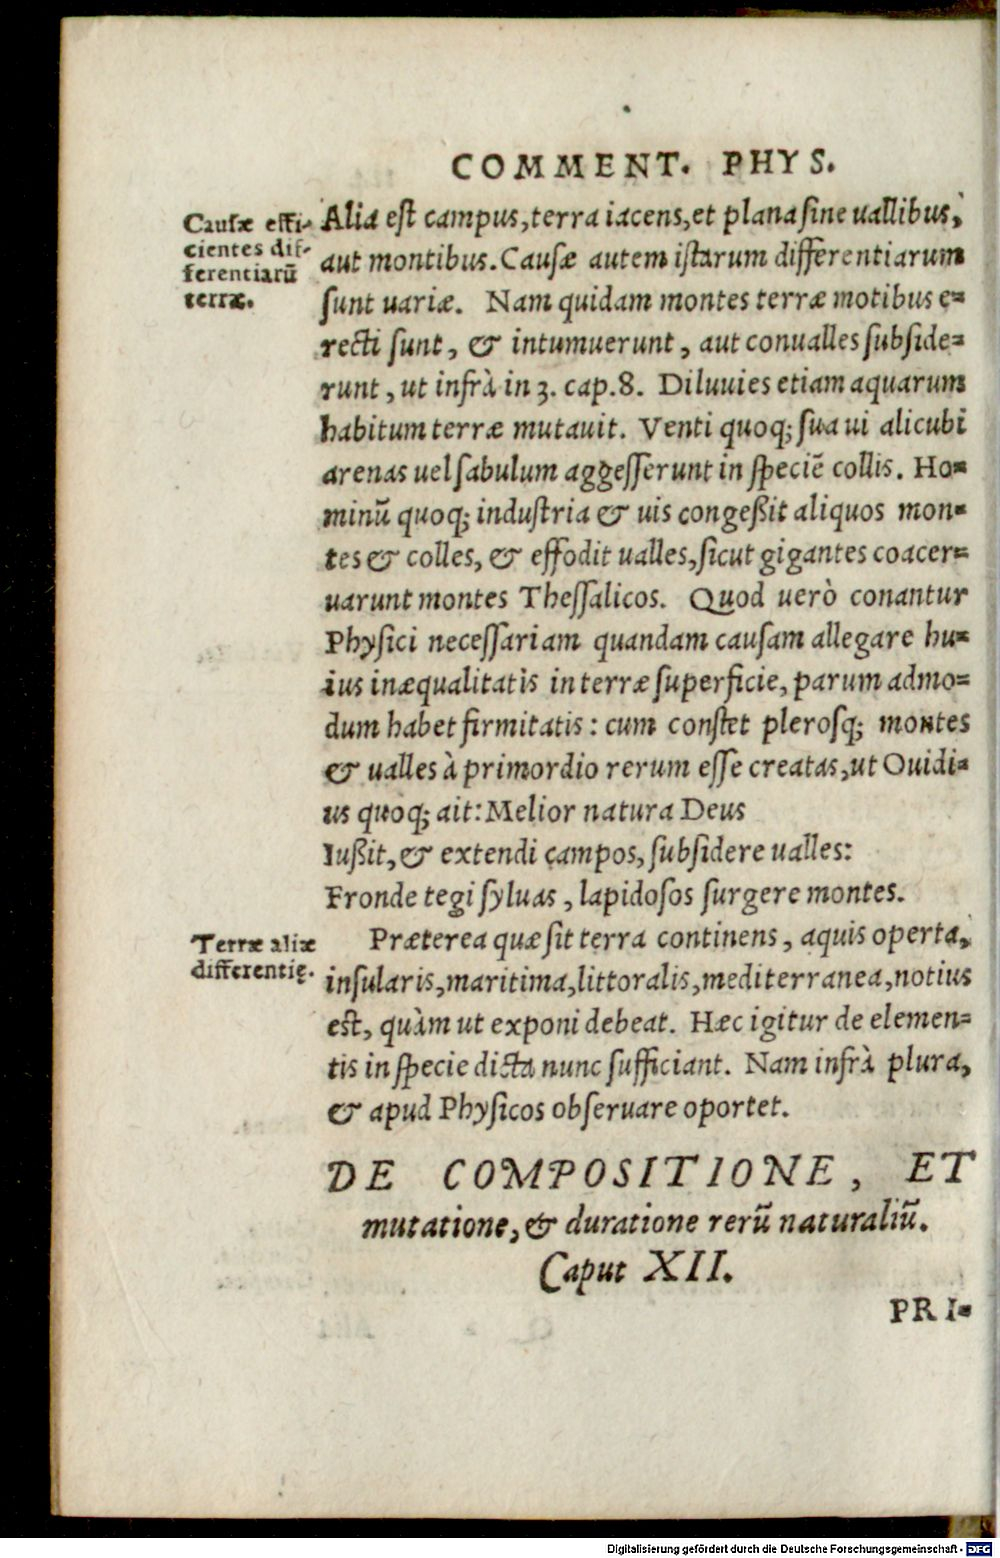 COMMENT. PHYS.
Causæ effi-
cientes dif-
ferentiarũ
terræ.
Alia est campus, terra iacens, et plana sine uallibus,
aut montibus. Causæ autem istarum differentiarum
sunt uariæ. Nam quidam montes terræ motibus e=
recti sunt, & intumuerunt, aut conualles subside=
runt, ut infrà in 3. cap. 8. Diluuies etiam aquarum
habitum terræ mutauit. Venti quoq; sua ui alicubi
arenas uel sabulum aggesserunt in speciẽ collis. Ho=
minũ quoq; industria & uis congeßit aliquos mon=
tes & colles, & effodit ualles, sicut gigantes coacer=
uarunt montes Thessalicos. Quod uerò conantur
Physici necessariam quandam causam allegare hu=
ius inæqualitatis in terræ superficie, parum admo=
dum habet firmitatis: cum constet plerosq; montes
& ualles à primordio rerum esse creatas, ut Ouidi=
us quoq; ait: Melior natura Deus
Iußit, & extendi campos, subsidere ualles:
Fronde tegi syluas, lapidosos surgere montes.
Terræ aliæ
differentię.
Præterea quæ sit terra continens, aquis operta,
insularis, maritima, littoralis, mediterranea, notius
est, quàm ut exponi debeat. Hæc igitur de elemen=
tis in specie dicta nunc sufficiant. Nam infrà plura,
& apud Physicos obseruare oportet.
DE COMPOSITIONE, ET
mutatione, & duratione rerũ naturaliũ.
Caput XII.
PRI=
Digitalisierung gefördert durch die Deutsche Forschungsgemeinschaft - DFG